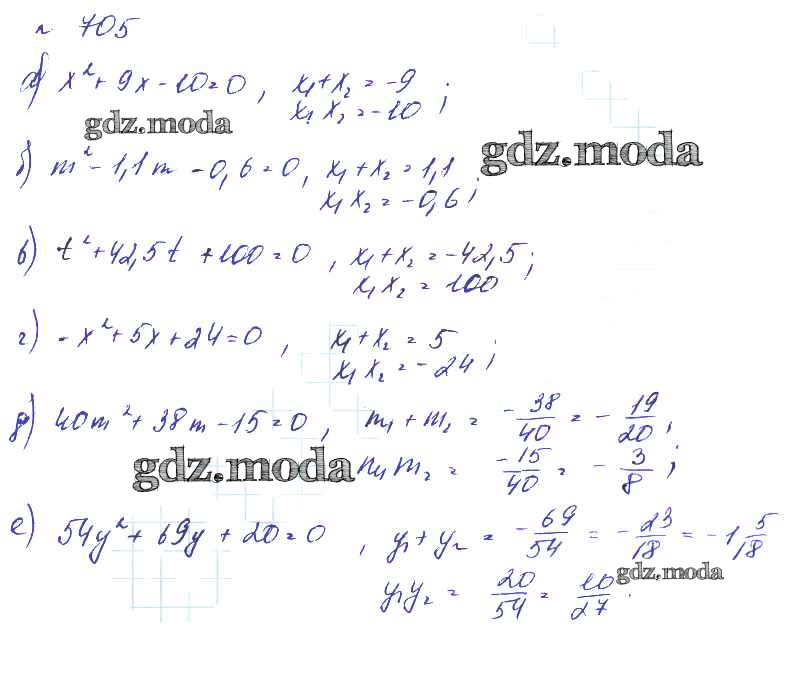 № 705
а) x² + 9x - 10 = 0, x₁ + x₂ = -9
x₁ x₂ = -10 ;
gdz.moda
gdz.moda
б) m² - 1,1m - 0,6 = 0, x₁ + x₂ = 1,1
x₁ x₂ = -0,6 ;
в) t² + 42,5t + 100 = 0, x₁ + x₂ = -42,5 ;
x₁ x₂ = 100
г) -x² + 5x + 24 = 0, x₁ + x₂ = 5
x₁ x₂ = -24 ;
д) 40m² + 38m - 15 = 0, m₁ + m₂ = -38/40 = -19/20 ;
gdz.moda
m₁ m₂ = -15/40 = -3/8 ;
е) 54y² + 69y + 20 = 0, y₁ + y₂ = -69/54 = -23/18 = -1 5/18
gdz.moda
y₁y₂ = 20/54 = 10/27.